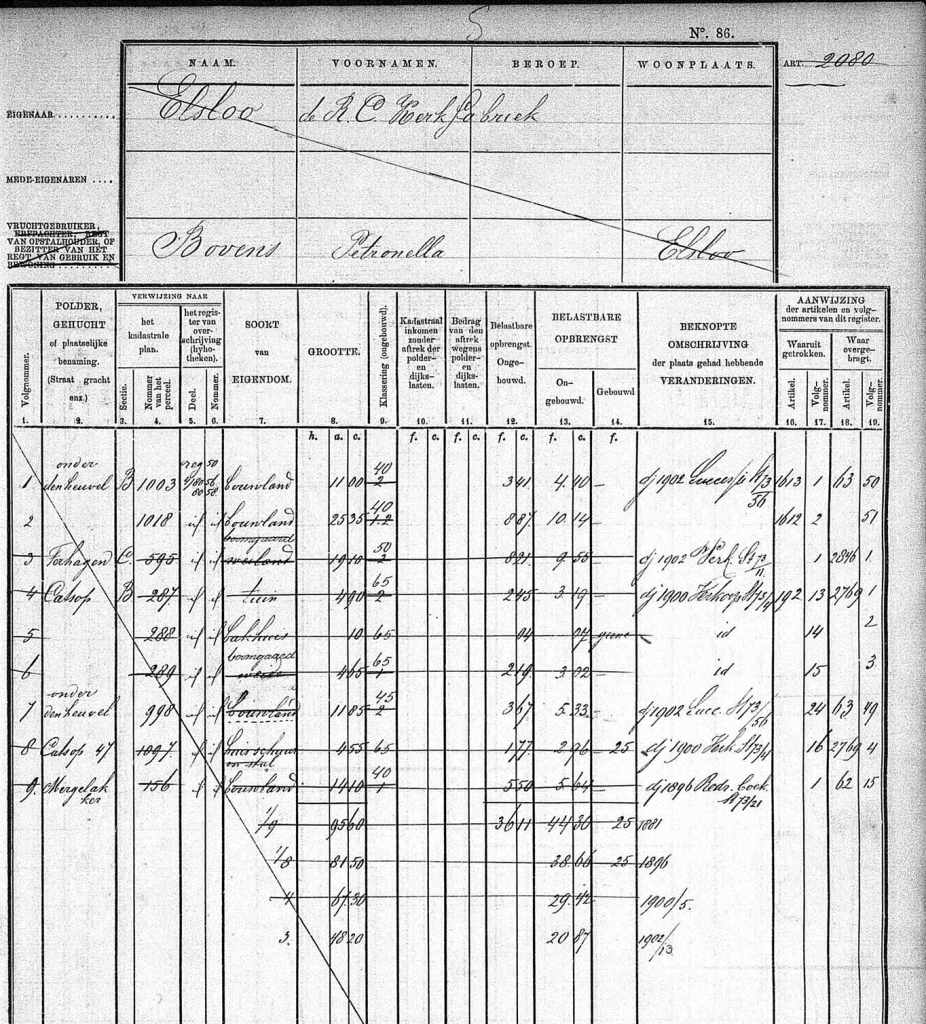 5
Nº. 86.
NAAM. VOORNAMEN. BEROEP. WOONPLAATS. ART. 2080
EIGENAAR........... Elsloo de R. C. Kerk fabriek
MEDE-EIGENAREN ....
VRUCHTGEBRUIKER,
ERFPACHTER, REGT
VAN OPSTALHOUDER, OF
BEZITTER VAN HET
REGT VAN GEBRUIK EN
BEWONING..........
Bovens Petronella Elsloo
Volgnommer.
POLDER,
GEHUCHT
of plaatselijke
benaming.
(Straat gracht
enz.)
VERWIJZING NAAR
het
kadastrale
plan.
Sectie.
Nommer
van het
perceel.
het regis-
ter van
over-
schrijving
(hypo-
theken).
Deel.
Nommer.
SOORT
van
EIGENDOM.
GROOTTE.
Klassering (ongebouwd).
Kadastraal
inkomen
zonder
aftrek der
polder-
en
dijks-
lasten.
Bedrag
van den
aftrek
wegens
polder-
en
dijks-
lasten.
Belastbare
opbrengst.
Onge-
bouwd.
BELASTBARE
OPBRENGST
On-
gebouwd.
Gebouwd
BEKNOPTE
OMSCHRIJVING
der plaats gehad hebbende
VERANDERINGEN.
AANWIJZING
der artikelen en volg-
nommers van dit register.
Waaruit
getrokken.
Waar
overge-
bragt.
Artikel.
Volg-
nommer.
Artikel.
Volg-
nommer.
1. 2. 3. 4. 5. 6. 7. 8. 9. 10. 11. 12. 13. 14. 15. 16. 17. 18. 19.
h. a. c. f. c. f. c. f. c. f. c. f.
onder reg 50 40
1 den heuvel B 1003 bouwland 11 00 2 3 41 4.40 - dj 1902 Successie St 73/56 1613 1 63 50
40
2 1018 id id bouwland 25 35 1.2 8 87 10.14 - 1612 2 51
boomgaard 50
3 Terhagen C. 595 id id weiland 19 10 2 8 21 9.55 - dj 1902 Verk. St 73/11 1 2846 1
65
4 Catsop B 287 id id tuin 4 90 2 2 45 3.19 - dj 1900 Verkoop St 73/4 192 13 2769 1
5 288 id id bakhuis 10 65 04 07 geene id 14 2
boomgaard 65
6 289 id id weide 4 65 1 2 19 3.02 - id 15 3
onder 45
7 den heuvel 998 id id bouwland 11 85 2 3 67 5.33 - dj 1902 Succ. St 73/56 24 63 49
8 Catsop 47 1097 id id huis schuur 4 55 65 1.77 2.96 - 25 dj 1900 Verk St 73/4 16 2769 4
en stal
40
9. Mergelak 156 id id bouwland 14 10 1 5 50 5.64 - dj 1896 1 62 15
ker St 73/21
1/9 95 60 36 11 44 30 25 1881
1/8 81 50 38 66 25 1896
4 67 30 29 42 1900/5.
3. 48 20 20 87 1902/13